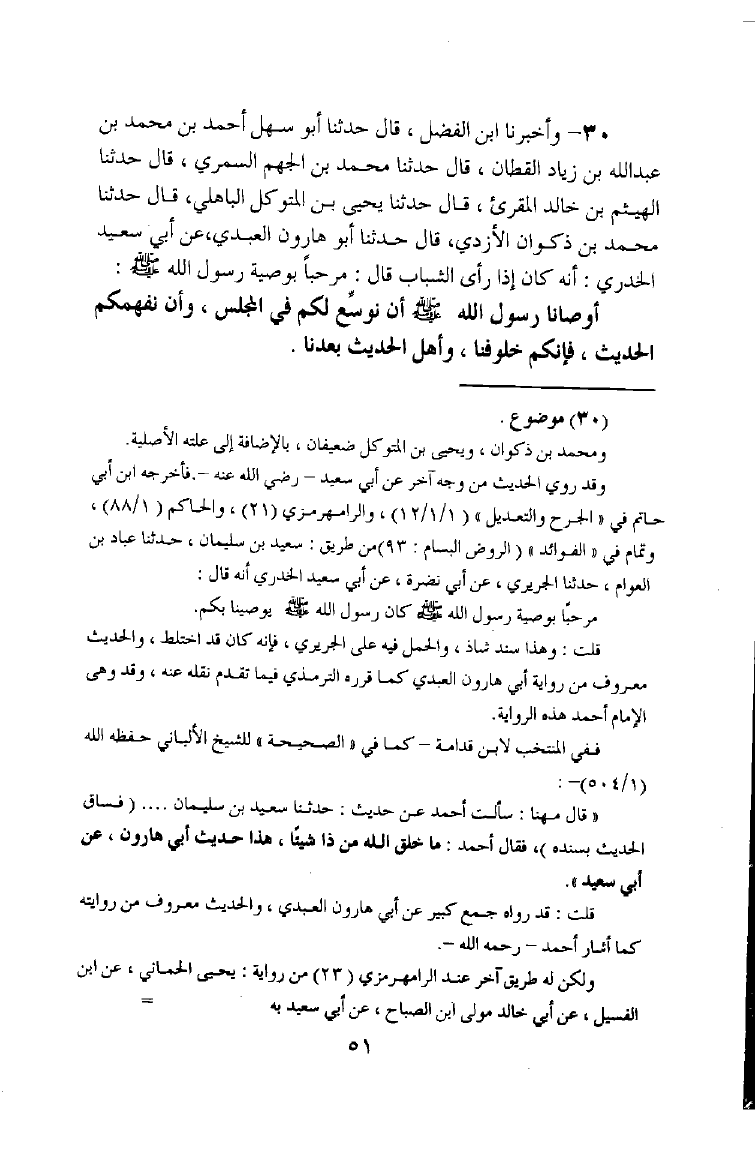 ٣٠- وأخبرنا ابن الفضل ، قال حدثنا أبو سهل أحمد بن محمد بن
عبدالله بن زياد القطان ، قال حدثنا محمد بن الجهم السمري ، قال حدثنا
الهيثم بن خالد المقرئ ، قال حدثنا يحيى بن المتوكل الباهلي، قال حدثنا
محمد بن ذكوان الأزدي، قال حدثنا أبو هارون العبدي،عن أبي سعيد
الخدري : أنه كان إذا رأى الشباب قال : مرحباً بوصية رسول الله ﷺ :
أوصانا رسول الله ﷺ أن نوسِّع لكم في المجلس ، وأن نفهمكم
الحديث ، فإنكم خلوفنا ، وأهل الحديث بعدنا .
(٣٠) موضوع .
ومحمد بن ذكوان ، ويحيى بن المتوكل ضعيفان ، بالإضافة إلى علته الأصلية.
وقد روي الحديث من وجه آخر عن أبي سعيد – رضي الله عنه –.فأخرجه ابن أبي
حاتم في « الجرح والتعديل » ( ١/١/ ١٢) ، والرامهرمزي (٢١) ، والحاكم ( ٨٨/١) ،
وتمام في « الفوائد » ( الروض البسام : ٩٣)من طريق : سعيد بن سليمان ، حدثنا عباد بن
العوام ، حدثنا الجريري ، عن أبي نضرة ، عن أبي سعيد الخدري أنه قال :
مرحبًا بوصية رسول الله ﷺ كان رسول الله ﷺ يوصينا بكم.
قلت : وهذا سند شاذ ، والحمل فيه على الجريري ، فإنه كان قد اختلط ، والحديث
معروف من رواية أبي هارون العبدي كما قرره الترمذي فيما تقدم نقله عنه ، وقد وهى
الإمام أحمد هذه الرواية.
ففي المنتخب لابن قدامة – كما في « الصحيحة » للشيخ الألباني حفظه الله
(٥٠٤/١)– :
« قال مهنا : سألت أحمد عن حديث : حدثنا سعيد بن سليمان .... ( فساق
الحديث بسنده )، فقال أحمد : ما خلق الله من ذا شيئًا ، هذا حديث أبي هارون ، عن
أبي سعيد ».
قلت : قد رواه جمع كبير عن أبي هارون العبدي ، والحديث معروف من روايته
كما أشار أحمد – رحمه الله –.
ولكن له طريق آخر عند الرامهرمزي ( ٢٣) من رواية : يحيى الحماني ، عن ابن
الغسيل ، عن أبي خالد مولى ابن الصباح ، عن أبي سعيد به =
٥١